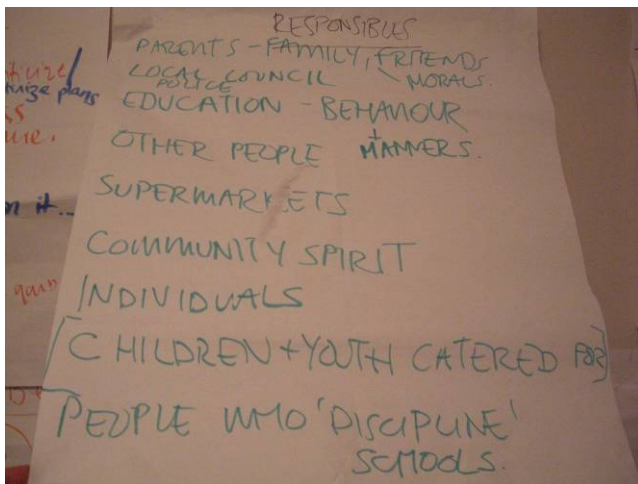 RESPONSIBLES
PARENTS - FAMILY, FRIENDS
MORALS.
LOCAL COUNCIL
POLICE
EDUCATION - BEHAVIOUR
+
MANNERS.
OTHER PEOPLE
SUPERMARKETS
COMMUNITY SPIRIT
INDIVIDUALS
[CHILDREN + YOUTH CATERED FOR]
PEOPLE WHO 'DISCIPLINE'
SCHOOLS.
plans
n it...